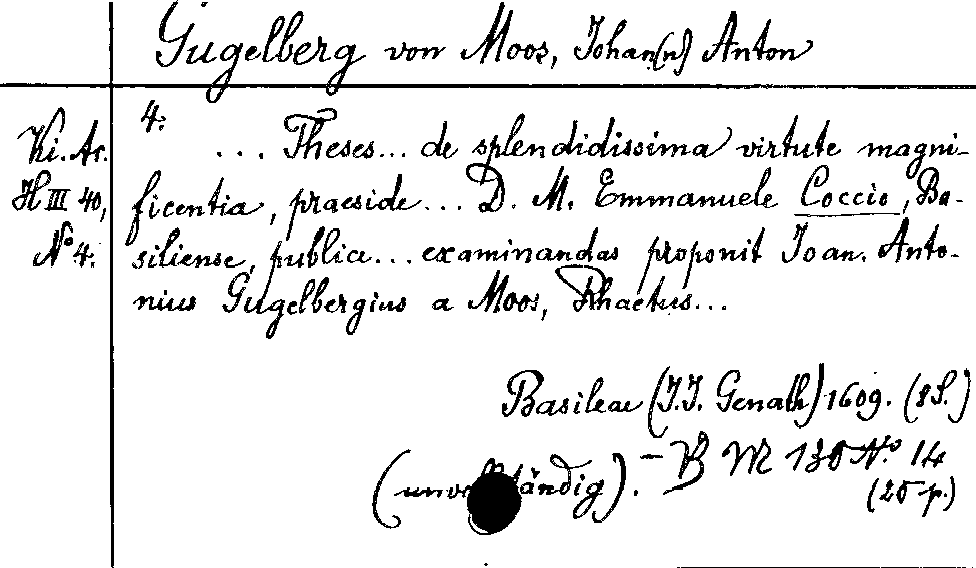 Gugelberg von Moos, Johan(n) Anton
4:
Ki. Ar.
H III 40,
No 4:
... Theses... de splendidissima virtute magni-
ficentia, praeside... D. M. Emmanuele Coccio, Ba-
siliense, publice... examinandas proponit Ioan. Anto-
nius Gugelbergius a Moos, Rhaetus...
Basileae (J.J. Genath) 1609. (8 S.)
(unvollständig). - B M 130 No. 14
(25 p.)